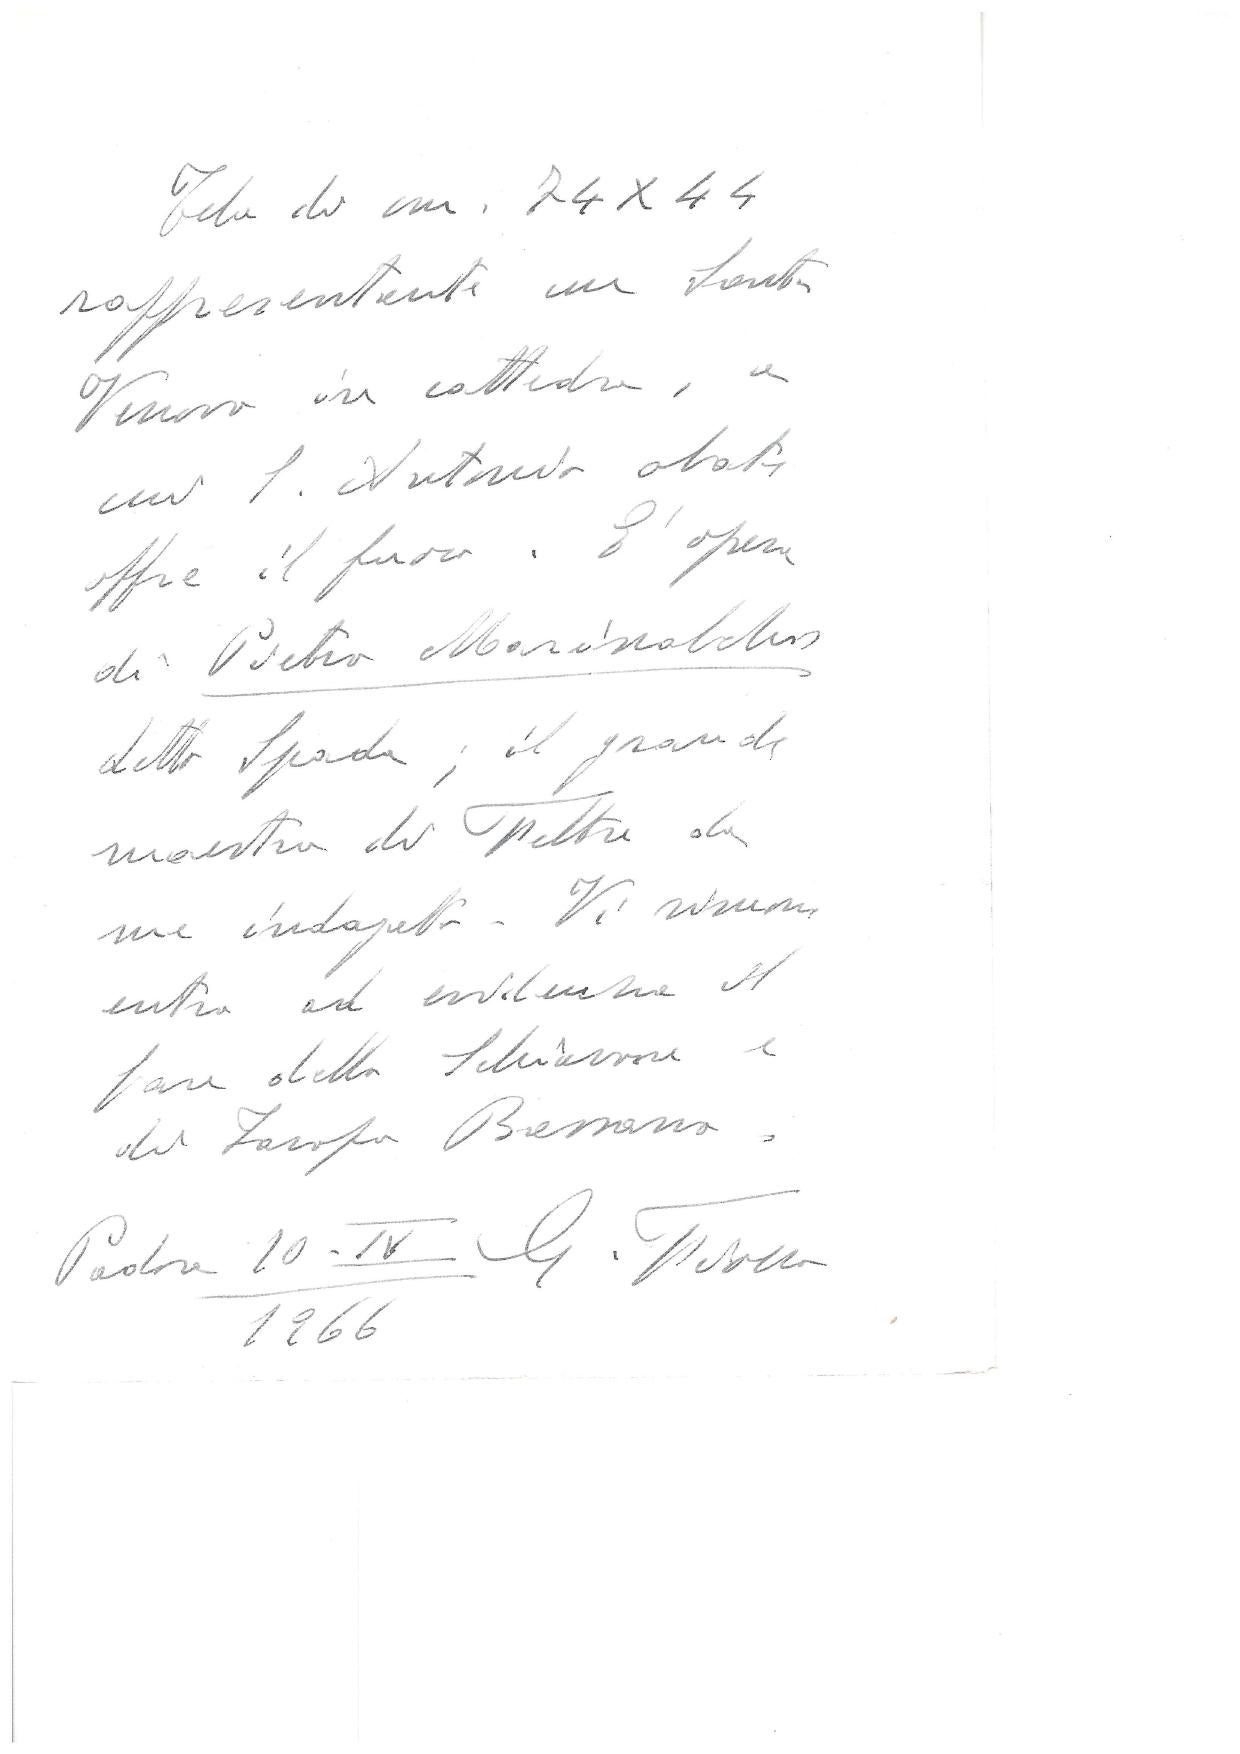 Tela di cm. 74X44
rappresentante un Santo
Vescovo in cattedra, a
cui S. Antonio abate
offre il fuoco. E' opera
di Pietro Marescalchi
detto Spada; il grande
maestro di Feltre da
me indagato. Vi
entra ad evidenza il
fare dello Schiavone e
di Jacopo Bassano.
Padova 10-IV G. Fiocco
1966